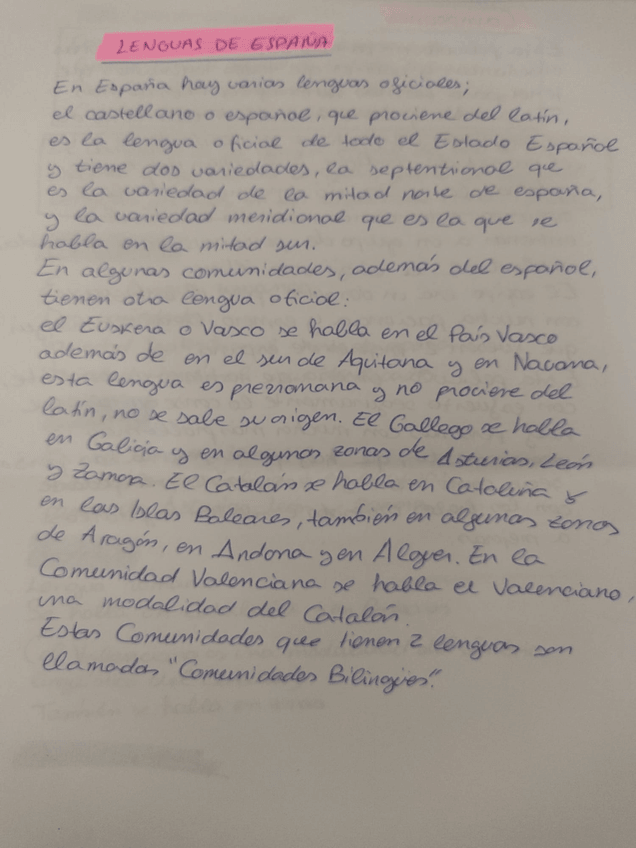 LENGUAS DE ESPAÑA
En España hay varias lenguas oficiales;
el castellano o español, que prociene del latín,
es la lengua oficial de todo el Estado Español
y tiene dos variedades, la septentrional que
es la variedad de la mitad norte de españa,
y la variedad meridional que es la que se
habla en la mitad sur.
En algunas comunidades, además del español,
tienen otra lengua oficial:
el Euskera o Vasco se habla en el País Vasco
además de en el sur de Aquitana y en Navarra,
esta lengua es prerromana y no prociene del
latín, no se sabe su origen. El Gallego se habla
en Galicia y en algunas zonas de Asturias, León
y Zamora. El Catalán se habla en Cataluña y
en las Islas Baleares, también en algunas zonas
de Aragón, en Andorra y en Alguer. En la
Comunidad Valenciana se habla el Valenciano,
una modalidad del Catalán.
Estas Comunidades que tienen 2 lenguas son
llamadas "Comunidades Bilingües".